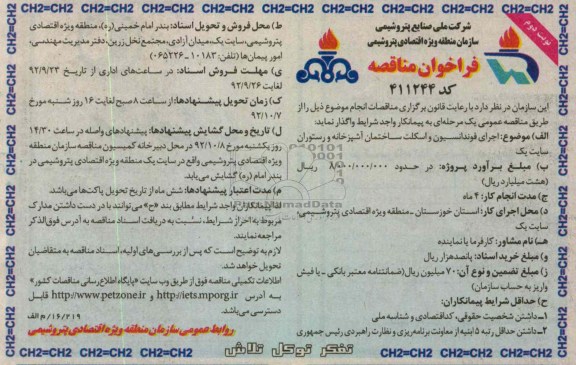 CH2=CH2 CH2=CH2 CH2=CH2 CH2=CH2 CH2=CH2 CH2=CH2 CH2=CH2 CH2=CH2
نوبت دوم
شرکت ملی صنایع پتروشیمی
سازمان منطقه ویژه اقتصادی پتروشیمی
فراخوان مناقصه
کد ۴۱۱۲۴۴
این سازمان در نظر دارد با رعایت قانون برگزاری مناقصات انجام موضوع ذیل را از
طریق مناقصه عمومی یک مرحله‌ای به پیمانکار واجد شرایط واگذار نماید:
الف) موضوع: اجرای فونداسیون و اسکلت ساختمان آشپزخانه و رستوران
سایت یک
ب) مبلغ برآورد پروژه: در حدود ۸/۰۰۰/۰۰۰/۰۰۰ ریال
(هشت میلیارد ریال)
ج) مدت انجام کار: ۴ ماه
د) محل اجرای کار: استان خوزستان ـ منطقه ویژه اقتصادی پتروشیمی،
سایت یک
هـ) نام مشاور: کارفرما یا نماینده
و) مبلغ خرید اسناد: پانصدهزار ریال
ز) مبلغ تضمین و نوع آن: ۷۰ میلیون ریال (ضمانتنامه معتبر بانکی ـ یا فیش
واریز به حساب سازمان)
ح) حداقل شرایط پیمانکاران:
۱ـ داشتن شخصیت حقوقی، کد اقتصادی و شناسه ملی
۲ـ داشتن حداقل رتبه ۵ ابنیه از معاونت برنامه‌ریزی و نظارت راهبردی رئیس جمهوری
ط) محل فروش و تحویل اسناد: بندر امام خمینی(ره)، منطقه ویژه اقتصادی
پتروشیمی، سایت یک، میدان آزادی، مجتمع نخل زرین، دفتر مدیریت مهندسی،
امور پیمان‌ها (تلفن: ۱۰۱۸۲ ـ ۰۶۵۲۲۶)
ی) مهلت فروش اسناد: در ساعت‌های اداری از تاریخ ۹۲/۹/۲۳
لغایت ۹۲/۹/۲۶
ک) زمان تحویل پیشنهادها: از ساعت ۸ صبح لغایت ۱۶ روز شنبه مورخ
۹۲/۱۰/۷
ل) تاریخ و محل گشایش پیشنهادها: پیشنهادهای واصله در ساعت ۱۴/۳۰
روز یکشنبه مورخ ۹۲/۱۰/۸ در محل دبیرخانه کمیسیون مناقصه سازمان منطقه
ویژه اقتصادی پتروشیمی واقع در سایت یک منطقه ویژه اقتصادی پتروشیمی در
بندر امام (ره) گشایش می‌یابد.
م) مدت اعتبار پیشنهادها: شش ماه از تاریخ تحویل پاکت‌ها می‌باشد.
پیمانکاران واجد شرایط مطابق بند «ح» می‌توانند با در دست داشتن مدارک
مربوط به احراز شرایط، نسبت به دریافت اسناد مناقصه به آدرس فوق‌الذکر
مراجعه نمایند.
لازم به توضیح است که پس از بررسی‌های اولیه، اسناد مناقصه به متقاضیان
تحویل خواهد شد.
اطلاعات تکمیلی مناقصه فوق از طریق وب سایت «پایگاه اطلاع رسانی مناقصات کشور»
به آدرس http://iets.mporg.ir و http://www.petzone.ir قابل
دسترسی می‌باشد.
۱۶/۲۱۹/م الف
روابط عمومی سازمان منطقه ویژه اقتصادی پتروشیمی
تفکر توکل تلاش
CH2=CH2 CH2=CH2 CH2=CH2 CH2=CH2 CH2=CH2 CH2=CH2